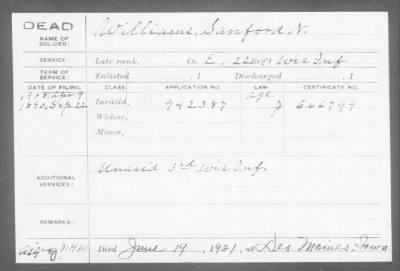 DEAD
NAME OF SOLDIER: Williams, Sanford N.
SERVICE: Late rank, Co. E, 22 Reg't Wis Inf
TERM OF SERVICE: Enlisted , 1 Discharged , 1
DATE OF FILING. CLASS. APPLICATION NO. LAW. CERTIFICATE NO.
1908, Apr 9 Age
1890, Sep 22 Invalid, 942387 J 666799
Widow,
Minor,
ADDITIONAL SERVICES: Unas'd 3rd Wis Inf.
REMARKS:
Died June 19, 1921, at Des Moines, Iowa